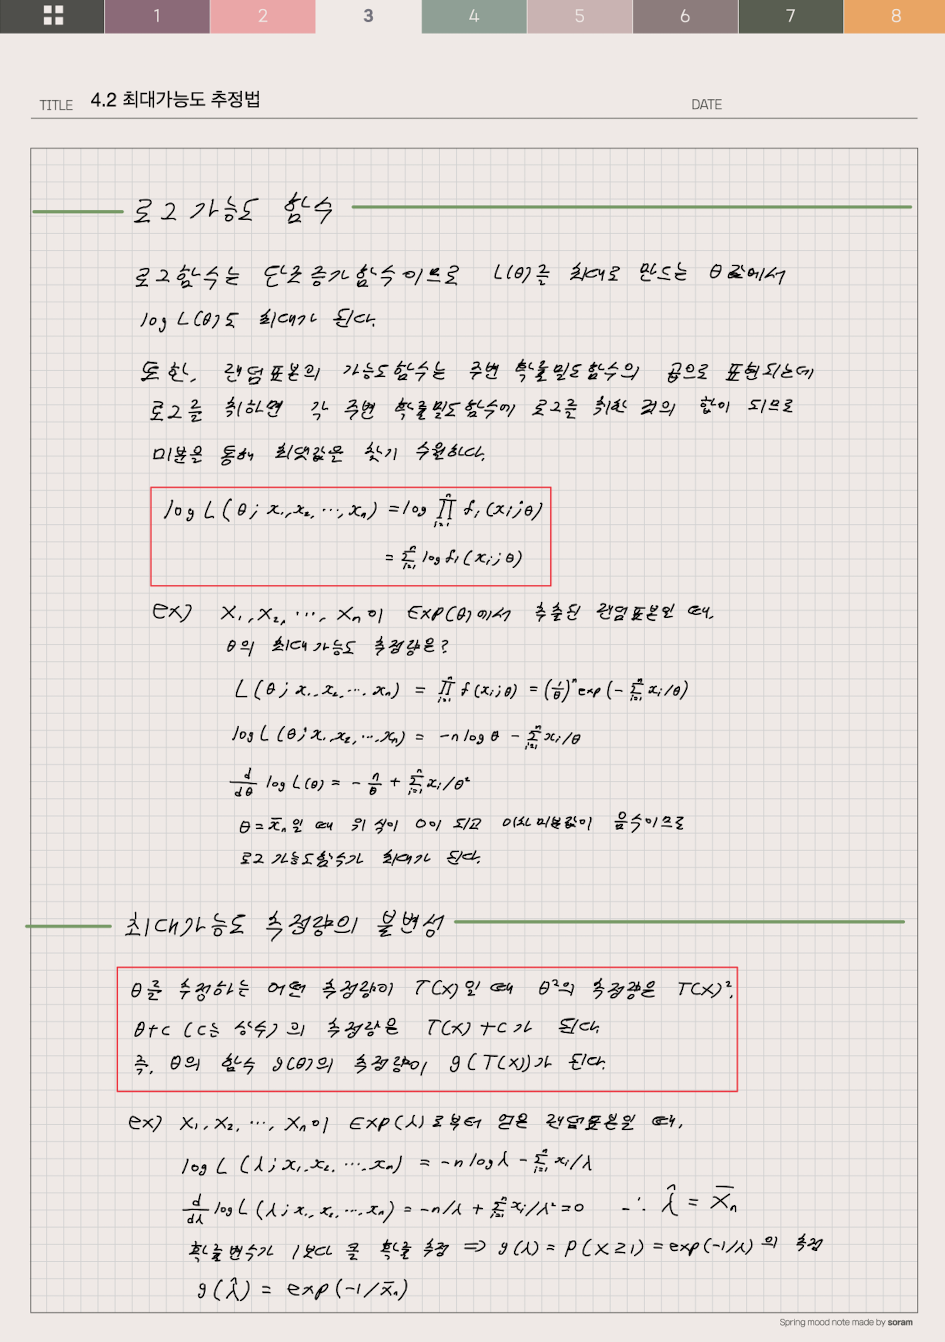 1 2 3 4 5 6 7 8
TITLE 4.2 최대가능도 추정법 DATE
로그 가능도 함수
로그함수는 단조증가함수이므로 L(θ)를 최대로 만드는 θ값에서
log L(θ)도 최대가 된다.
또한, 랜덤표본의 가능도함수는 주변 확률밀도함수의 곱으로 표현되는데
로그를 취하면 각 주변 확률밀도함수에 로그를 취한 것의 합이 되므로
미분을 통해 최댓값을 찾기 수월하다.
log L(θ; x₁, x₂, ⋯, xₙ) = log ∏ⁿᵢ₌₁ f₁(xᵢ; θ)
= Σⁿᵢ₌₁ log f₁(xᵢ; θ)
ex) X₁, X₂, ⋯, Xₙ이 EXP(θ)에서 추출된 랜덤표본일 때,
θ의 최대가능도 추정량은?
L(θ; x₁, x₂, ⋯, xₙ) = ∏ⁿᵢ₌₁ f(xᵢ; θ) = (1/θ)ⁿ exp(-Σⁿᵢ₌₁ xᵢ/θ)
log L(θ; x₁, x₂, ⋯, xₙ) = -n log θ - Σⁿᵢ₌₁ xᵢ/θ
d/dθ log L(θ) = - n/θ + Σⁿᵢ₌₁ xᵢ/θ²
θ = x̄ₙ일 때 위 식이 0이 되고 이차미분값이 음수이므로
로그 가능도함수가 최대가 된다.
최대가능도 추정량의 불변성
θ를 추정하는 어떤 추정량이 T(X)일 때 θ²의 추정량은 T(X)²,
θ+c (c는 상수)의 추정량은 T(X)+c가 된다.
즉, θ의 함수 g(θ)의 추정량이 g(T(X))가 된다.
ex) X₁, X₂, ⋯, Xₙ이 EXP(λ)로부터 얻은 랜덤표본일 때,
log L(λ; x₁, x₂, ⋯, xₙ) = -n log λ - Σⁿᵢ₌₁ xᵢ/λ
d/dλ log L(λ; x₁, x₂, ⋯, xₙ) = -n/λ + Σⁿᵢ₌₁ xᵢ/λ² = 0 ∴ λ̂ = X̄ₙ
확률변수가 1보다 클 확률 추정 ⇒ g(λ) = P(X≥1) = exp(-1/λ)의 추정
g(λ̂) = exp(-1/x̄ₙ)
Spring mood note made by soram